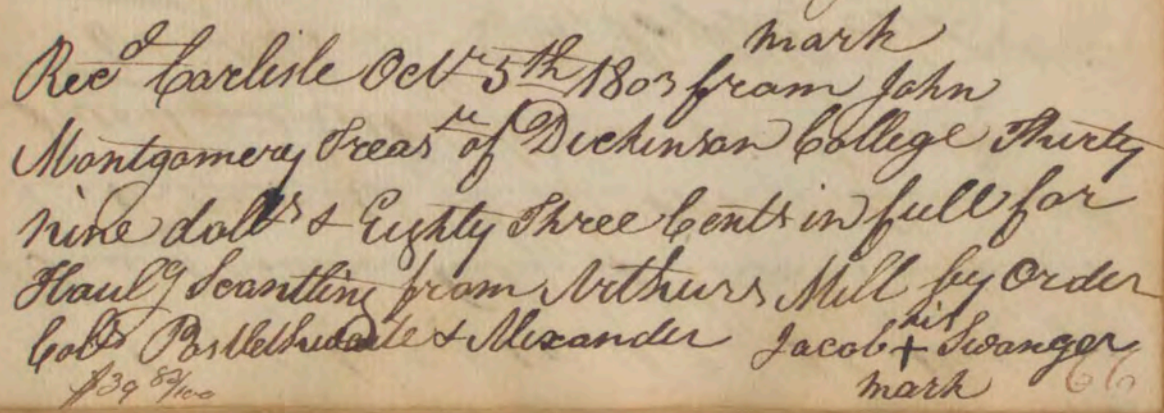 mark
Recd Carlisle Octr 5th 1803 from John
Montgomery Treasr of Dickinson College Thirty
nine dolls & Eighty Three Cents in full for
Haulg Scantling from Arthurs Mill by Order
Cols Postlethwaite & Alexander Jacob his + Swanger
mark
$39 83/100
66